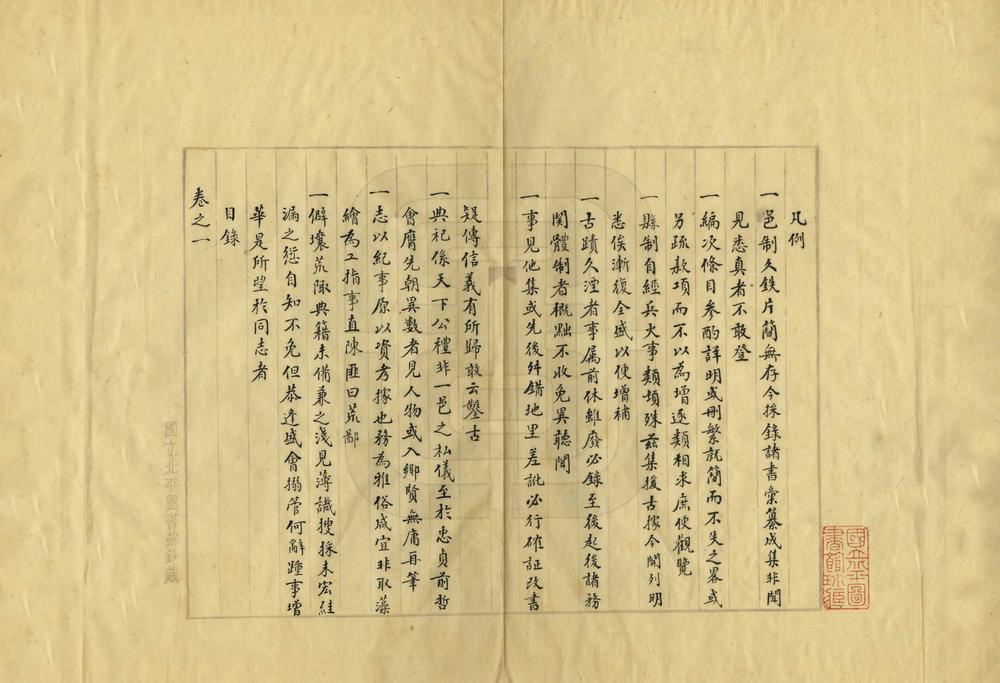 凡例
一邑制久鉄片簡無存今採錄諸書彙纂成集非聞
見悉真者不敢登
一編次條目參酌詳明或刪繁就簡而不失之畧或
另疏款項而不以為增逐類相求庶便觀覽
一縣制自經兵火事類填殊茲集援古據今開列明
悉俟漸復全盛以便增補
一古蹟久湮者事属前休雖廢必錄至後起後諸務
関體制者概黜不收免異聽聞
一事見他集或先後舛錯地里差訛必行確証改書
疑傳信義有所歸敢云鑿古
一典祀係天下公禮非一邑之私儀至於忠貞前哲
會膺先朝異數者見人物或入鄉賢無庸再筆
一志以紀事原以資考據也務為雅俗咸宜非取藻
繪為工指事直陳匪曰荒鄙
一僻壤荒陬典籍未備兼之淺見薄識搜採未宏絓
漏之愆自知不免但恭逢盛會搦管何辭踵事增
華是所望於同志者
目錄
卷之一
國立北平圖書館珍藏
國立北平圖書館鈔藏